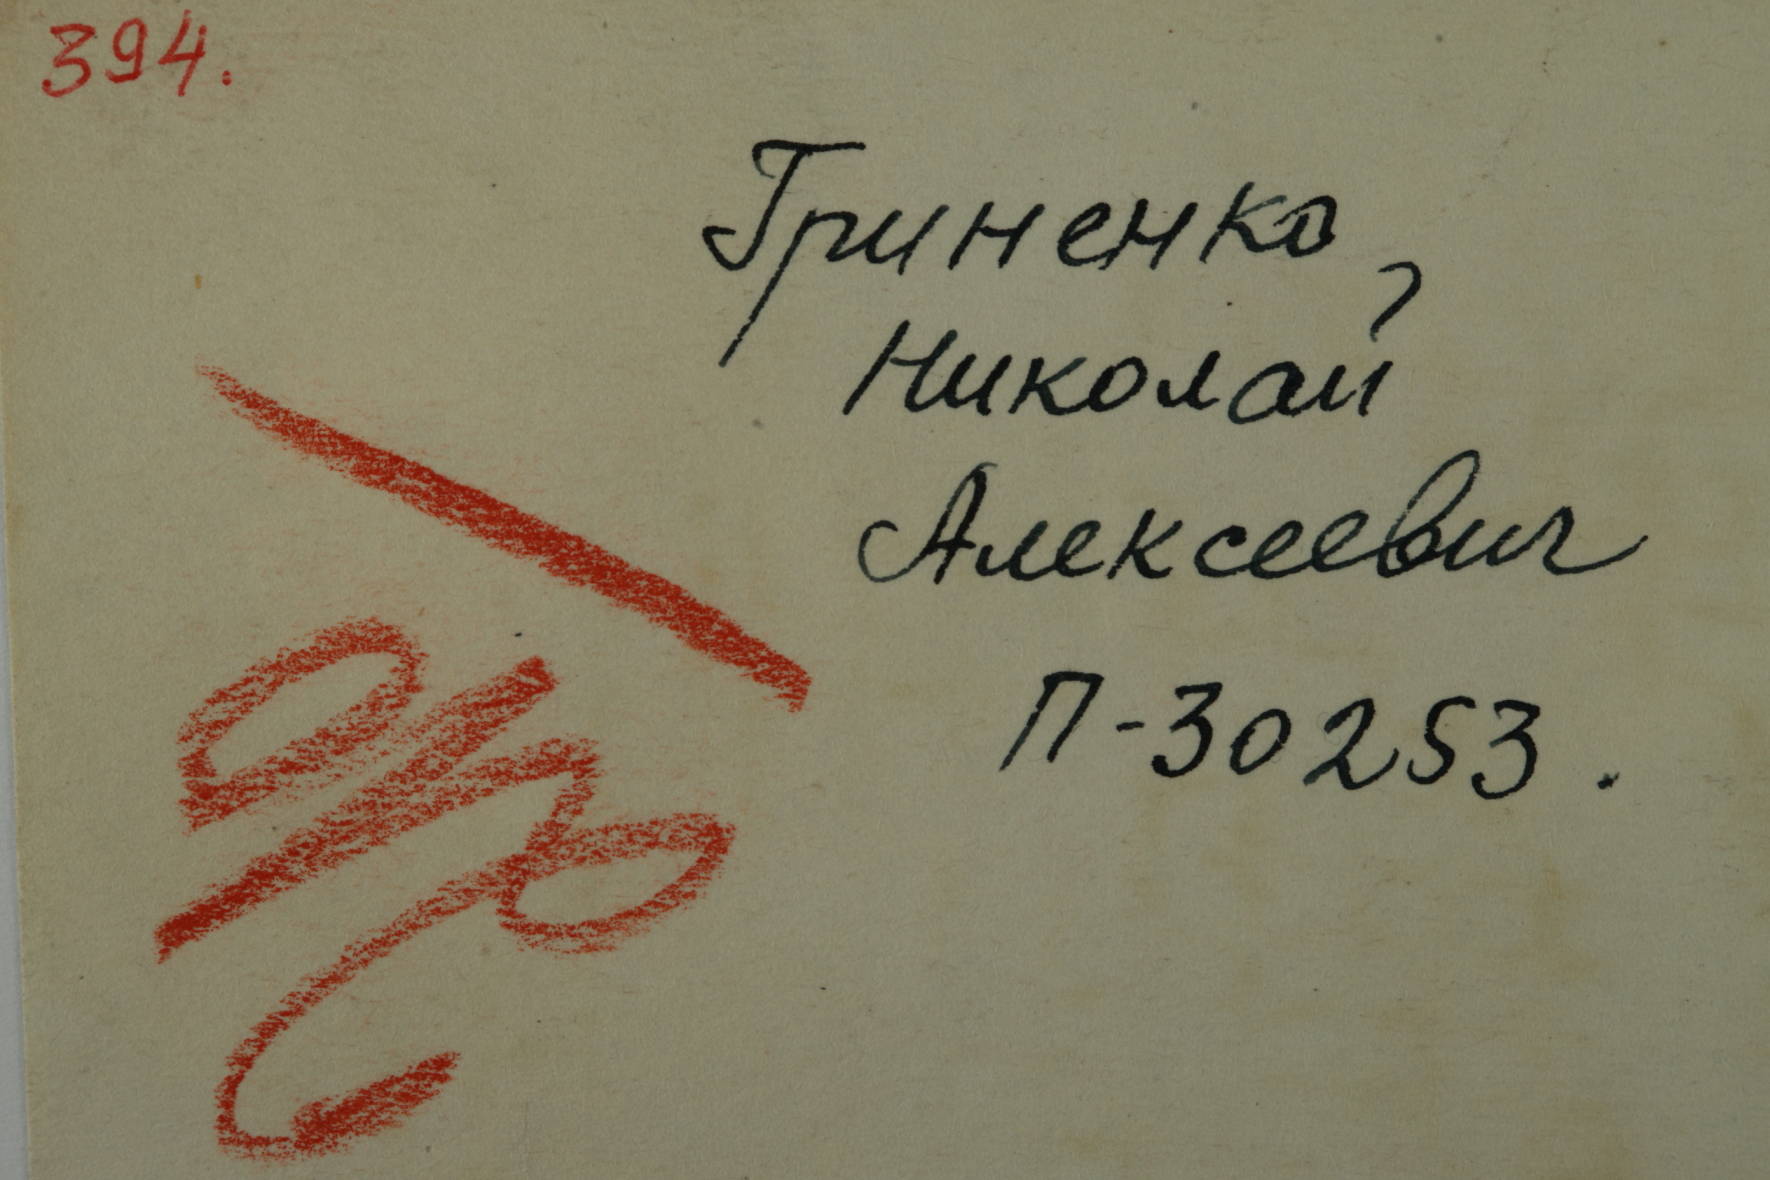 394.
Гриненко,
Николай
Алексеевич
П-30253.